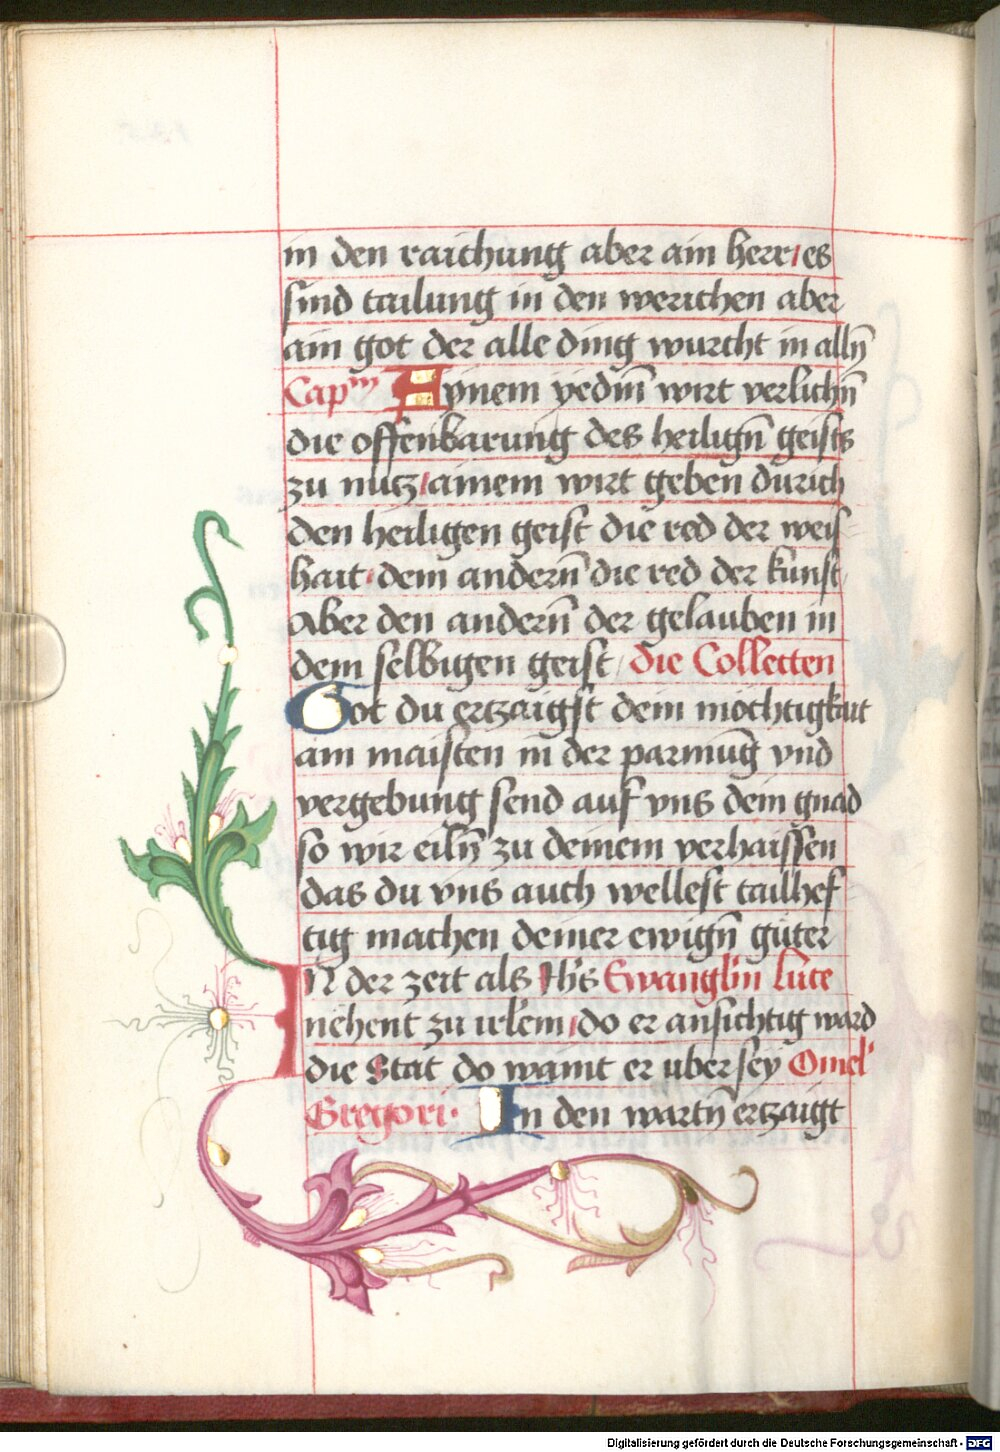 in den raichung aber ain herr/es
sind tailung in den werichen aber
ain got der alle ding wurcht in alln̄
Capᵐ Aynem yedm̄ wirt verlichn̄
die offenbarung des heilign̄ geists
zu nutz/ainem wirt geben durich
den heiligen geist die red der weis
hait/dem andern̄ die red der kunst/
aber den andern̄ der gelauben in
dem selbigen geist/die Collecten
Got du ertzaigst dein mochtigkait
am maisten in der parmūg vnd
vergebung send auf vns dein gnad
so wir eiln̄ zu deinem verhaissen
das du vns auch wellest tailhef
tig machen deiner ewign̄ guter
IN der zeit als Jhs Ewanglm̄ Luce
nehent zu irlem/do er ansichtig ward
die Stat do waint er uber sey Omel'
Gregori· In den wartn̄ ertzaigt
Digitalisierung gefördert durch die Deutsche Forschungsgemeinschaft - DFG